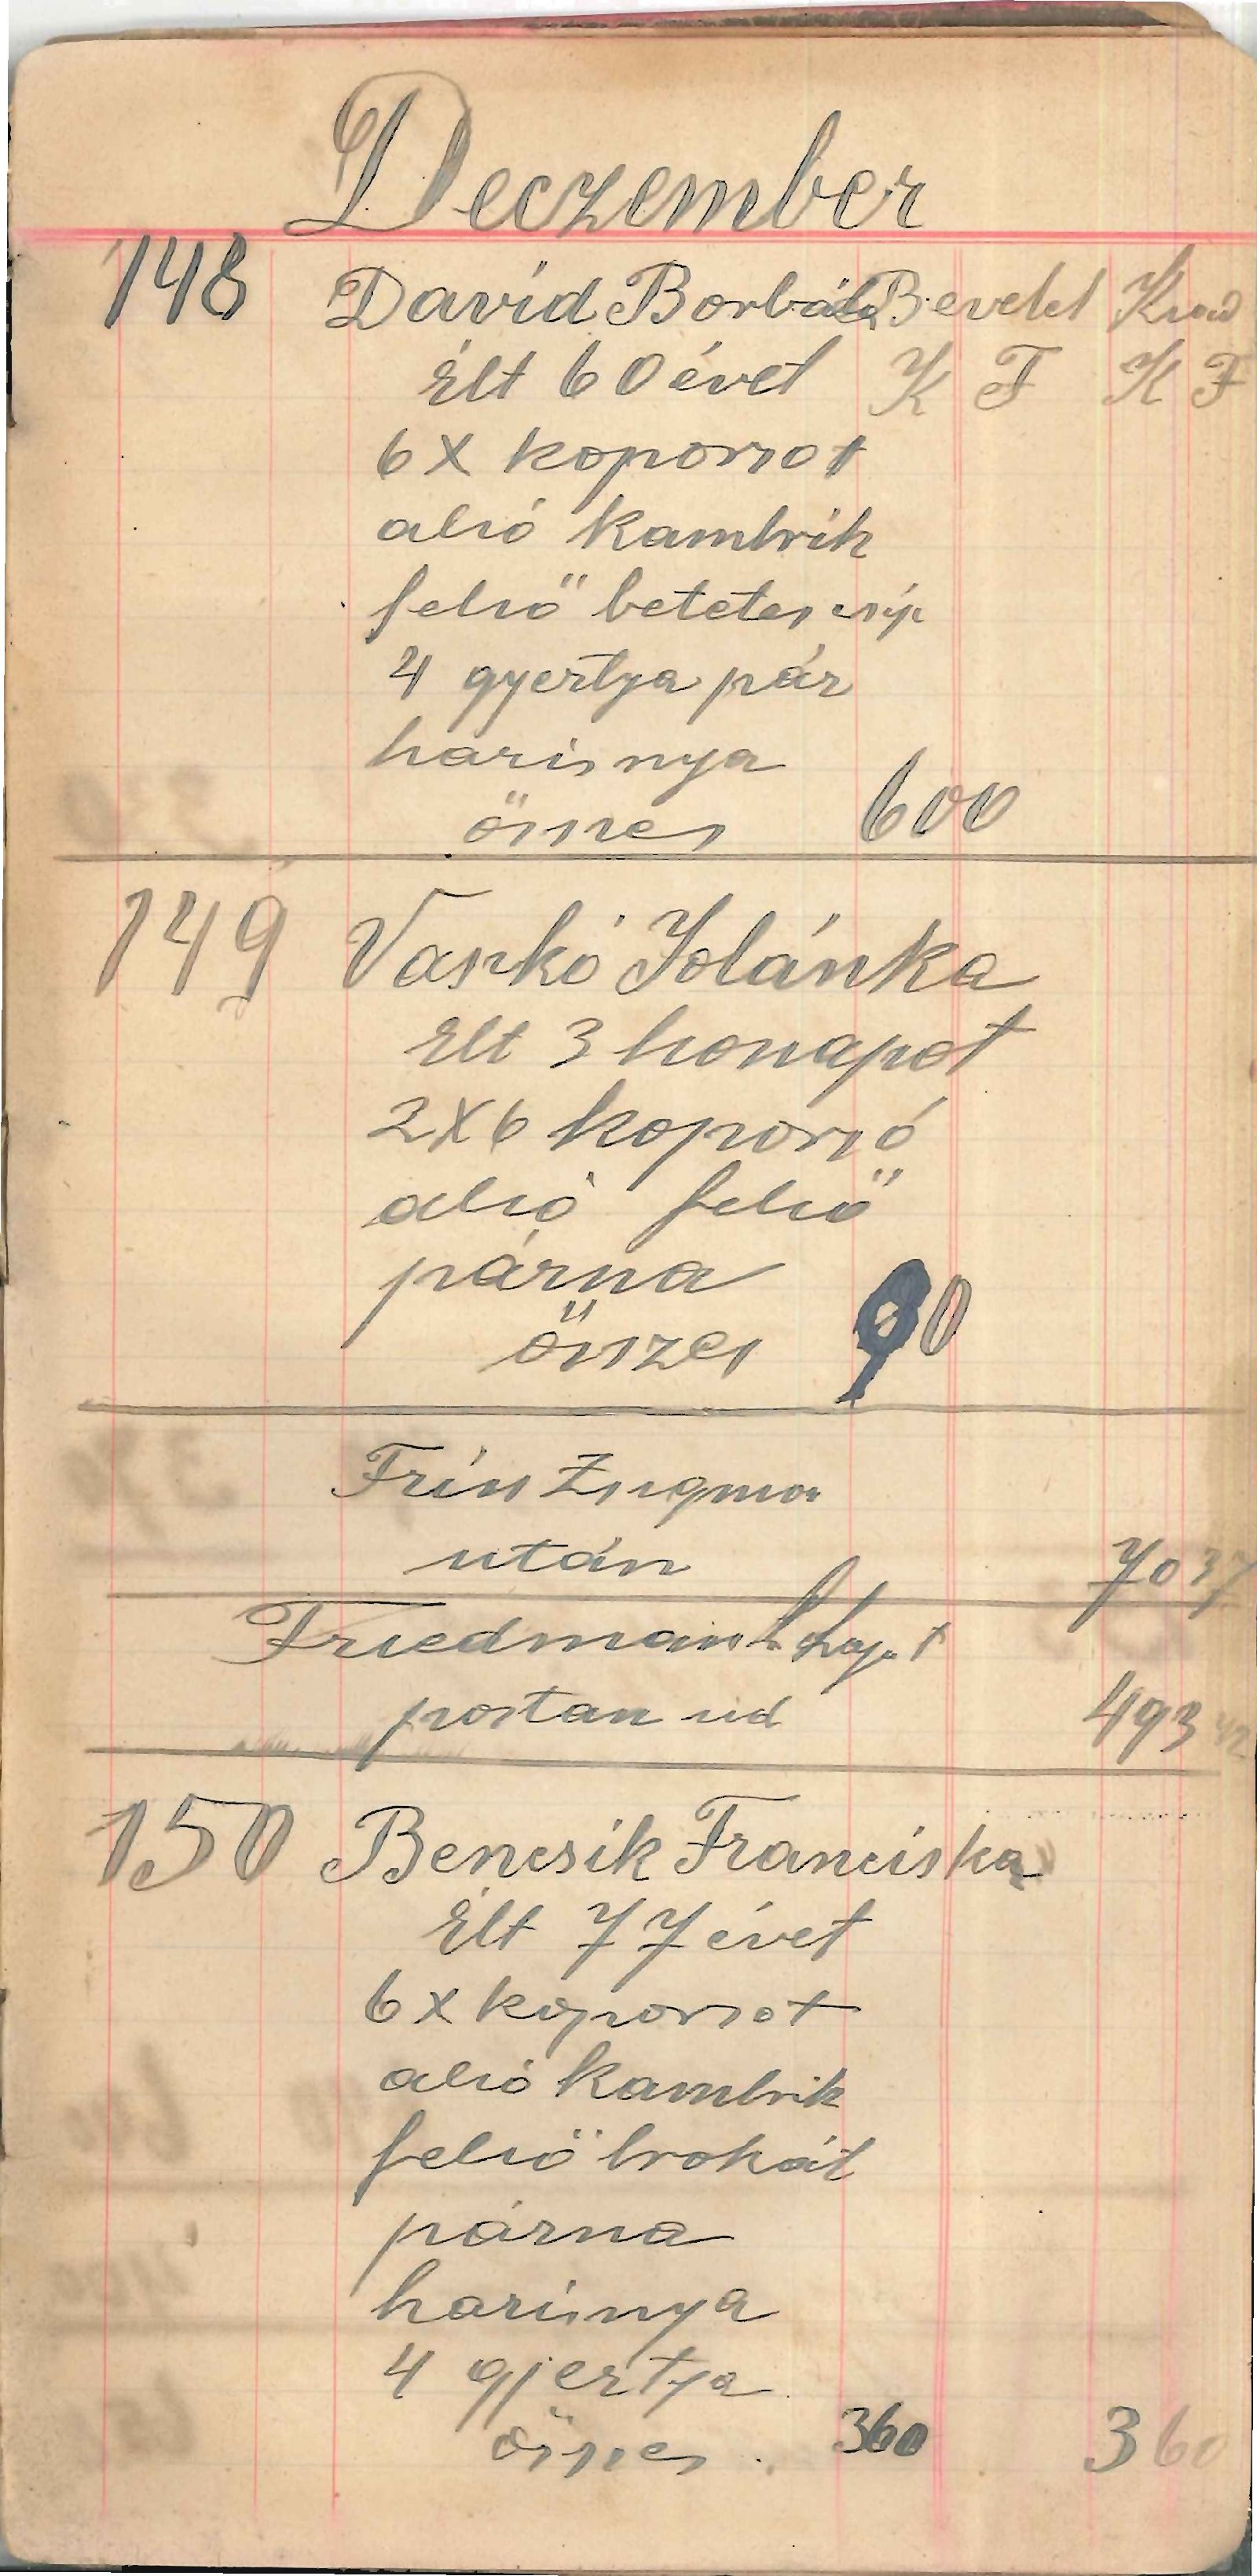 Deczember
148 Davíd Borbála Bevétel Kiad
Élt 60 évet K F K F
6 X koporsot
alsó kambrik
felső betetes csip
4 gyertya pár
harisnya
összes 600
149 Vaskó Jolánka
Elt 3 honapot
2X6 koporsó
alsó felső
párna
öszzes 90
után 70 37
Friedman
postan 493 42
150 Bencsik Franciska
Élt 77 évet
6 x koporsot
alsó kambrik
felső brokát
párna
harisnya
4 gjertya
összes 360 360